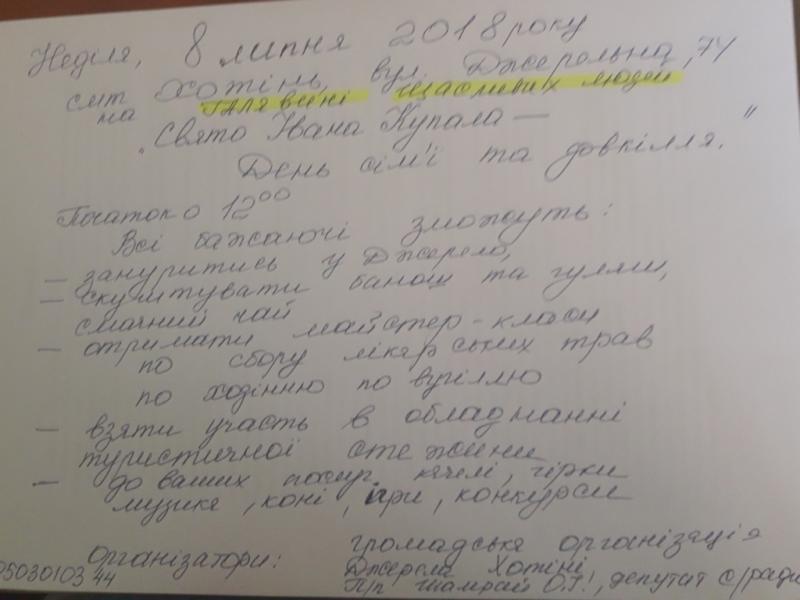 Неділя, 8 липня 2018 року
смт Хотінь, вул. Джерельна, 74
на галявині щасливих людей
"Свято Івана Купала —
День сім'ї та довкілля."
Початок о 12⁰⁰
Всі бажаючі зможуть:
— зануритись у Джерело,
— скуштувати банош та гуляш,
смачний чай
— отримати майстер-класи
по збору лікарських трав
по ходінню по вугіллю
— взяти участь в обладнанні
туристичної стежини
— до ваших послуг качелі, гірки
музика, коні, ігри, конкурси
організатори: громадська організація
Джерела Хотіні
0503010344 п/п Шамрай О.Г., депутат с/ради